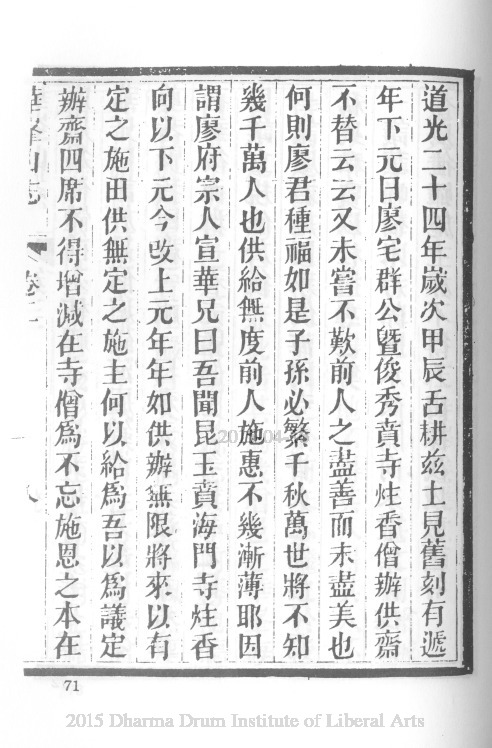 道光二十四年歲次甲辰舌耕茲土見舊刻有遞
年下元日廖宅群公曁俊秀賁寺炷香僧辦供齋
不替云云又未嘗不歎前人之盡善而未盡美也
何則廖君種福如是子孫必繁千秋萬世將不知
幾千萬人也供給無度前人施惠不幾漸薄耶因
謂廖府宗人宣華兄曰吾聞昆玉賁海門寺炷香
向以下元今改上元年年如供辦無限將來以有
定之施田供無定之施主何以給爲吾以爲議定
辦齋四席不得增減在寺僧爲不忘施恩之本在
山志 卷二 八
71
2015 Dharma Drum Institute of Liberal Arts